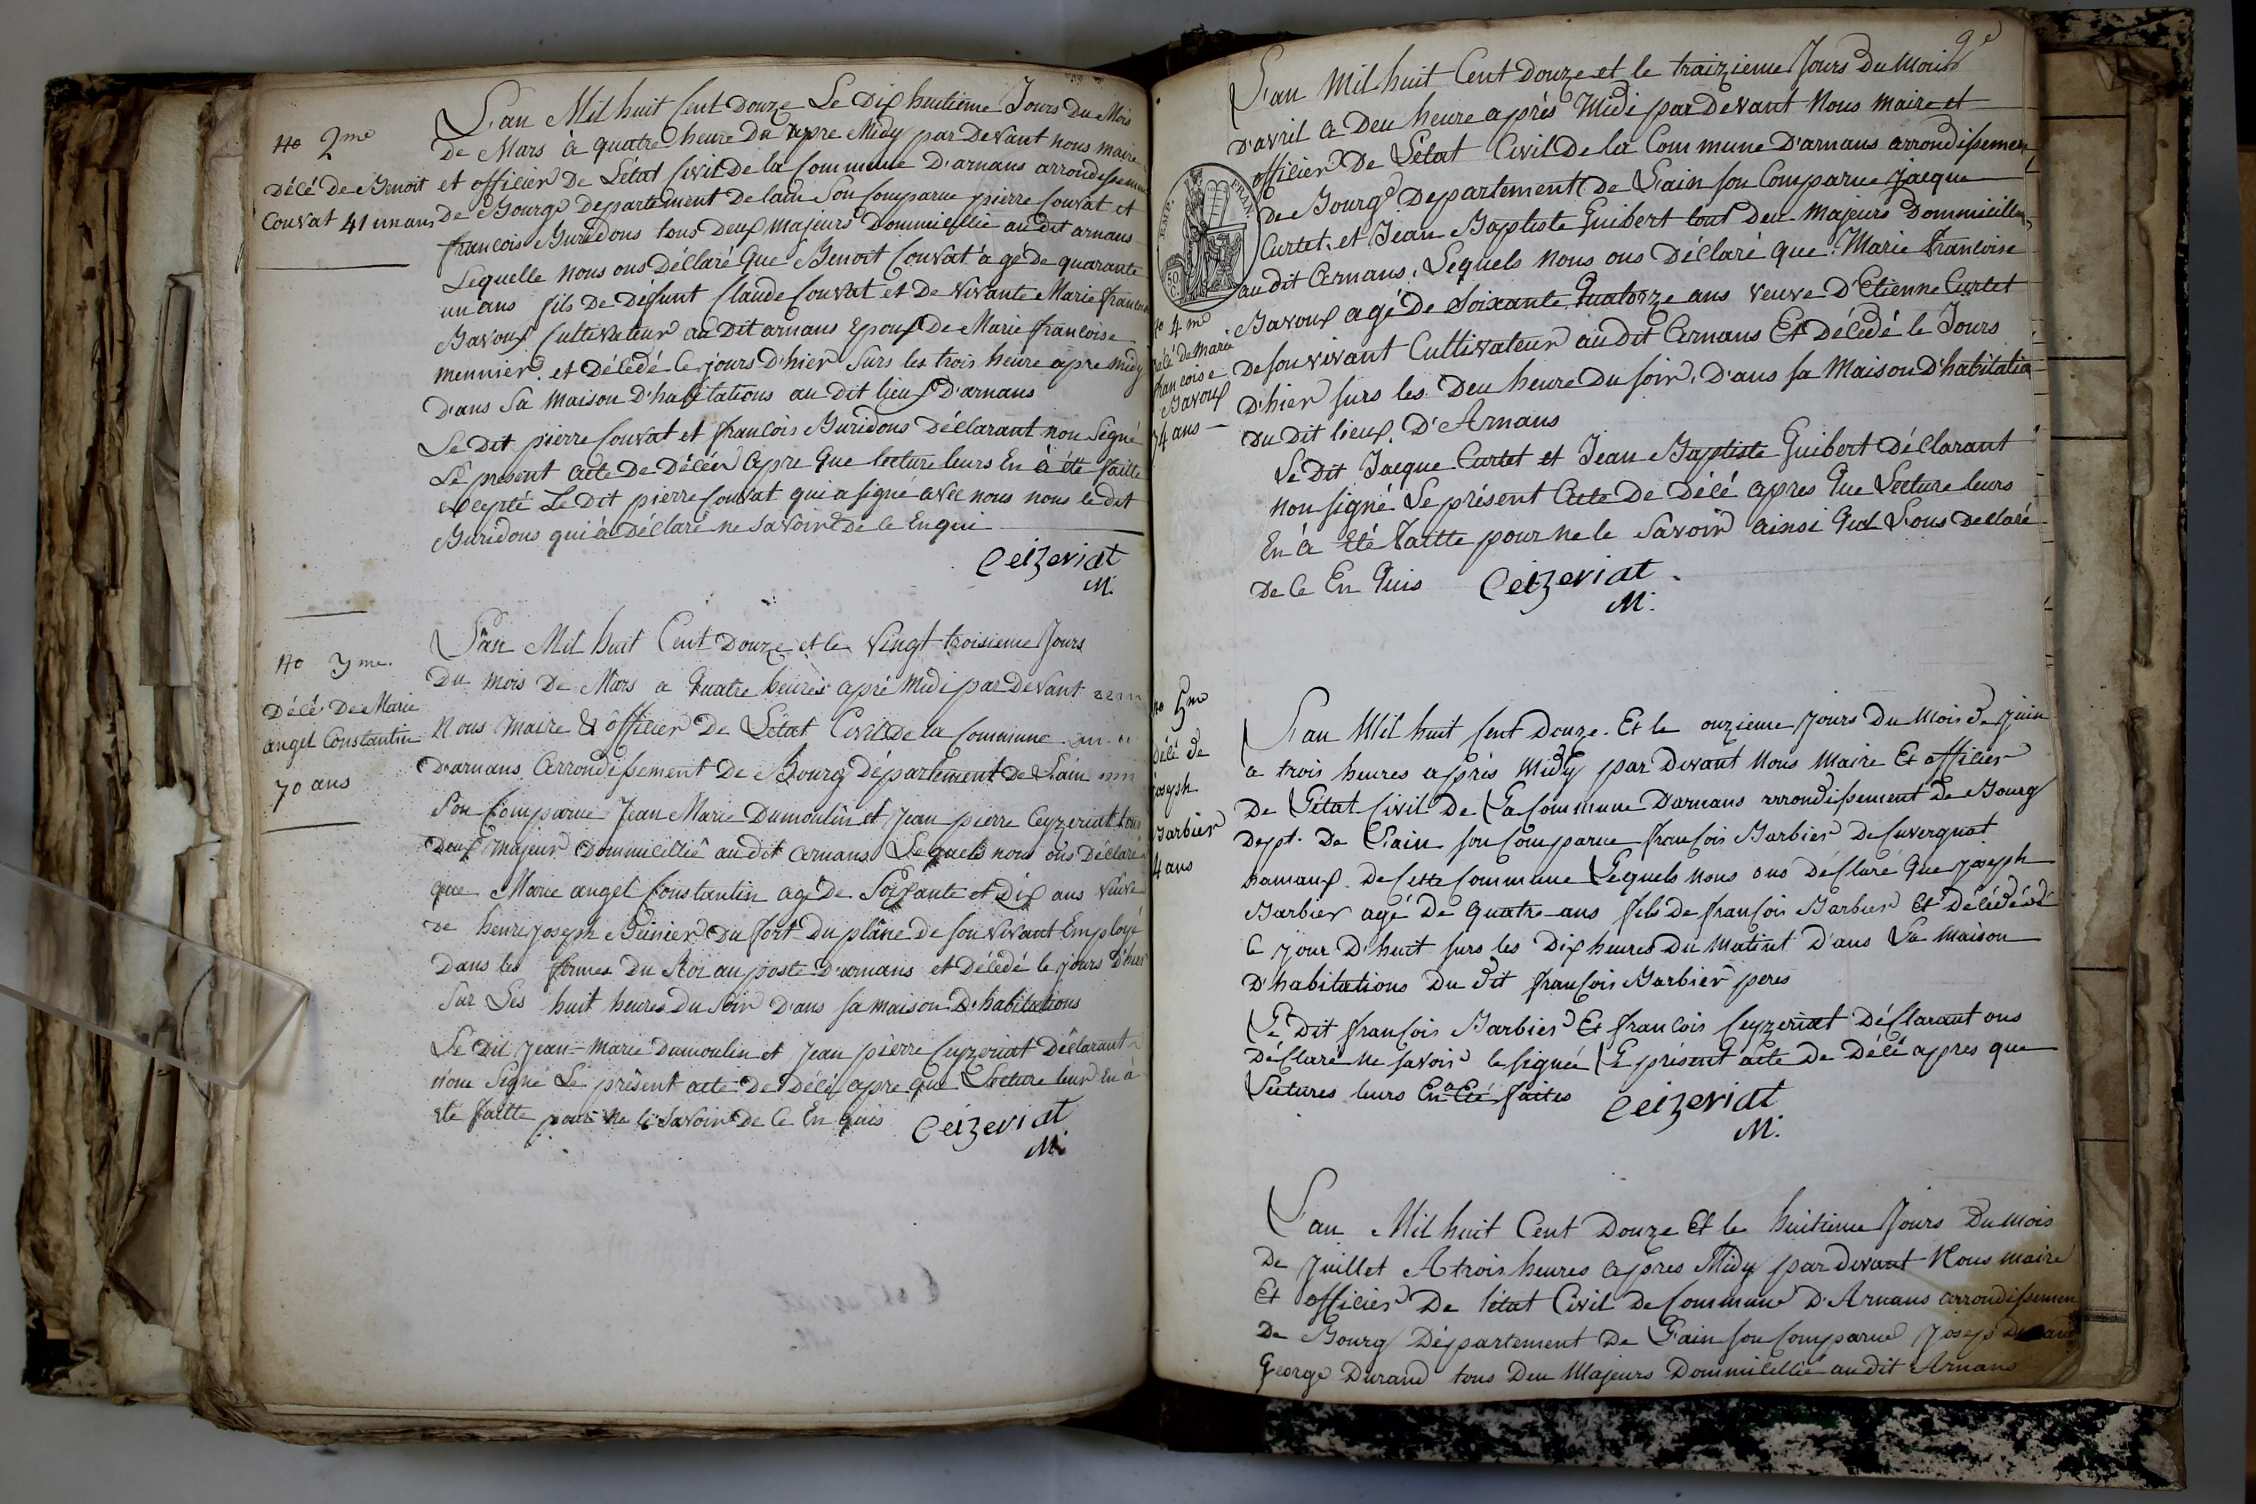 No 2me
Décé de Benoit
Couvat 41 un ans
L'an Mil huit Cent Douze Le Dix huitième Jours Du Mois
De Mars à quatre heure Du apre Midy par Devant nous maire
et officier De L'état Civil De la Commune D'arnans arrondissement
De Bourg Departement De lain Son Comparue pierre Couvat et
francois Buridons tous Deux majeurs Dommicillie au dit arnans
Lequelle nous ons Déclaré que Benoit Couvat âgé De quarante
un ans fils De Défunt Claude Couvat et De Vivante Marie francoise
Bavoux Cultivateur au Dit arnans Epoux De Marie francoise
mennier et Décédé le jours D'hier Surs les trois heure apre midy
D'ans Sa maison D'habitations au Dit lieux D'arnans
Le Dit pierre Couvat et francois Buridons Déclarant non Signé
Le présent acte De Décér apre Que lecture leurs En à été faitte
excepté Le Dit pierre Couvat qui a signé avec nous nous le dit
Buridons qui à Déclaré ne Savoir De Ce Enqui
Ceizeriat
M.
No 3me.
Décé De Marie
angel Constantin
70 ans
L'an Mil huit Cent Douze et le Vingt troisieme Jours
Du mois De Mars a Quatre heures apré Midi par Devant
Nous Maire & officier De L'état Civil De la Commune
D'arnans Arrondissement De Bourg Département De Lain
Son Comparue Jean Marie Dumoulin et Jean pierre Ceyzeriat tous
Deux Majeur Dommicillié au dit arnans Lequels nous ons Déclaré
que Marie angel Constantin agé De Soixante et Dix ans Veuve
De henri joseph Guinier Du fort Du plâne de son Vivant Employé
Dans les fermes Du Roi au poste D'arnans et Décédé le jours D'hier
Sur Les huit heures Du Soir D'ans sa maison D'habitations
Le Dit Jean-Marie Dumoulin et Jean pierre Ceyzeriat Déclarant
n'one Signé Le présent acte De Décé apre que Lecture leur En à
ete faitte pour ne le Savoir De Ce En quis
Ceizeriat
M.
L'an Mil huit Cent Douze et le traizieme Jours Du Mois
D'avril a Deu heure après Midi par Devant Nous maire et
officier De L'état Civil De la Commune D'arnans arrondissemen
De Bourg Departement De L'ain son Comparue Jacque
Curtet et Jean Baptiste Guibert tout Deu Majeurs Dommicillie
au dit Arnans. Lequels nous ons Déclaré que Marie francoise
Bavoux agé De Soixante Quatorze ans Veuve D'Etienne Curtet
De son vivant Cultivateur au dit Arnans Et Décédé le Jours
D'hier surs les Deu heure Du soir, D'ans sa Maison D'habitatio
Du Dit lieux D'Arnans
Le Dit Jacque Curtet et Jean Baptiste Guibert Déclarant
non signé Le présent Acte De Décé apres Que Lecture leurs
En à Eté faitte pour ne le Savoir ainsi Qu'il L'ons Declaré
De Ce En Quis
Ceizeriat
M.
4me
Décé De Marie
francoise
Bavoux
74 ans
No 5me
Décé de
joseph
Barbier
4 ans
L'an Mil huit Cent Douze. Et le onzieme Jours Du Mois De Juin
a trois heures après Midy par Devant Nous Maire Et officier
De L'état Civil De La Commune D'arnans arrondissement de Bourg
Dept. De L'ain son Comparue françois Barbier De Cuvergnat
hamaux De Cette Commune Lequels nous ons Déclaré Que Joseph
Barbier agé De Quatre ans fils de françois Barbier Et Décédé
Ce Jour D'huit surs les Dix heures Du Matint D'ans La Maison
D'habitations Du Dit françois Barbier peres
Le Dit françois Barbier Et francois Ceyzeriat Déclarant ons
Déclaré ne savoir le signée Le présent acte De Décé apres que
Lectures leurs En a Eté faites
Ceizeriat
M.
L'an Mil huit Cent Douze Et le huitieme Jours Du mois
De Juillet A trois heures apres Midy par Devant Nous maire
Et officier De l'état Civil de Commune D'Arnans arrondissemen
De Bourg Département De L'ain son Comparue Josep
George Durand tous Deu Majeurs Dommicillie au dit Arnans